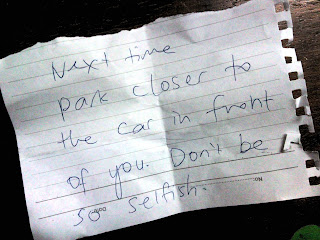 Next time
park closer to
the car in front
of you. Don't be
so selfish.